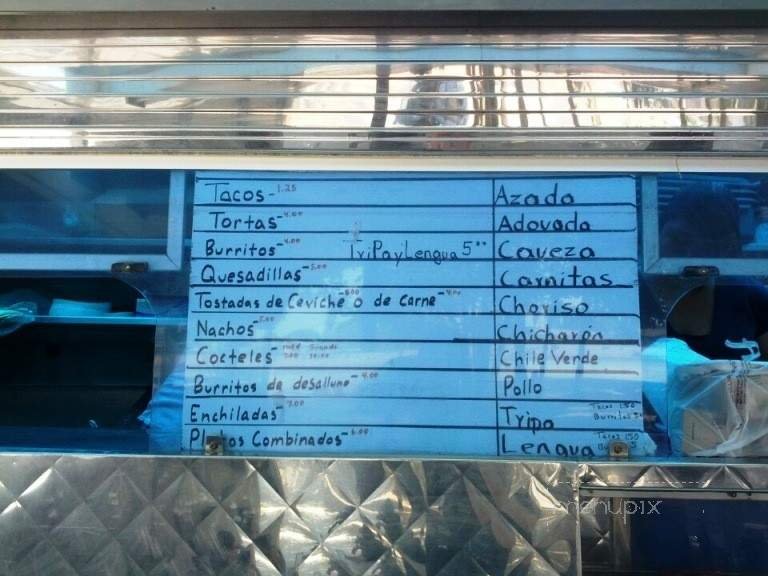 Tacos - 1.25
Azada
Tortas - 4.00
Adovada
Burritos - 4.00 TriPayLengua 5°°
Caveza
Quesadillas - 5.00
Carnitas
Tostadas de Ceviche o de Carne -
Choriso
Nachos - 5.00
Chicharón
Cocteles -
Chile Verde
Burritos de desalluno - 4.00
Pollo
Enchiladas - 7.00
Tripa Tacos 1.50
Burritos 5
Platos Combinados - 6.00
Lengua Tacos 1.50
menupix